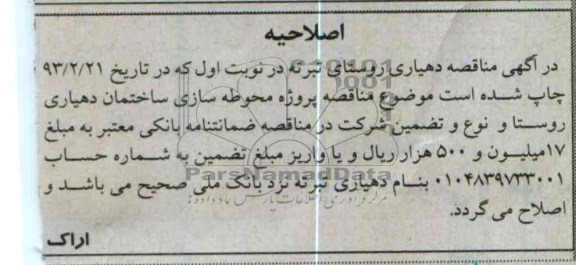 اصلاحیه
در آگهی مناقصه دهیاری روستای تبرته در نوبت اول که در تاریخ ۹۳/۲/۲۱
چاپ شده است موضوع مناقصه پروژه محوطه سازی ساختمان دهیاری
روستا و نوع و تضمین شرکت در مناقصه ضمانتنامه بانکی معتبر به مبلغ
۱۷میلیون و ۵۰۰ هزار ریال و یا واریز مبلغ تضمین به شماره حساب
۰۱۰۴۸۳۹۷۳۳۰۰۱ بنام دهیاری تبرته نزد بانک ملی صحیح می باشد و
ParsNamadData
اصلاح می گردد.
اراک